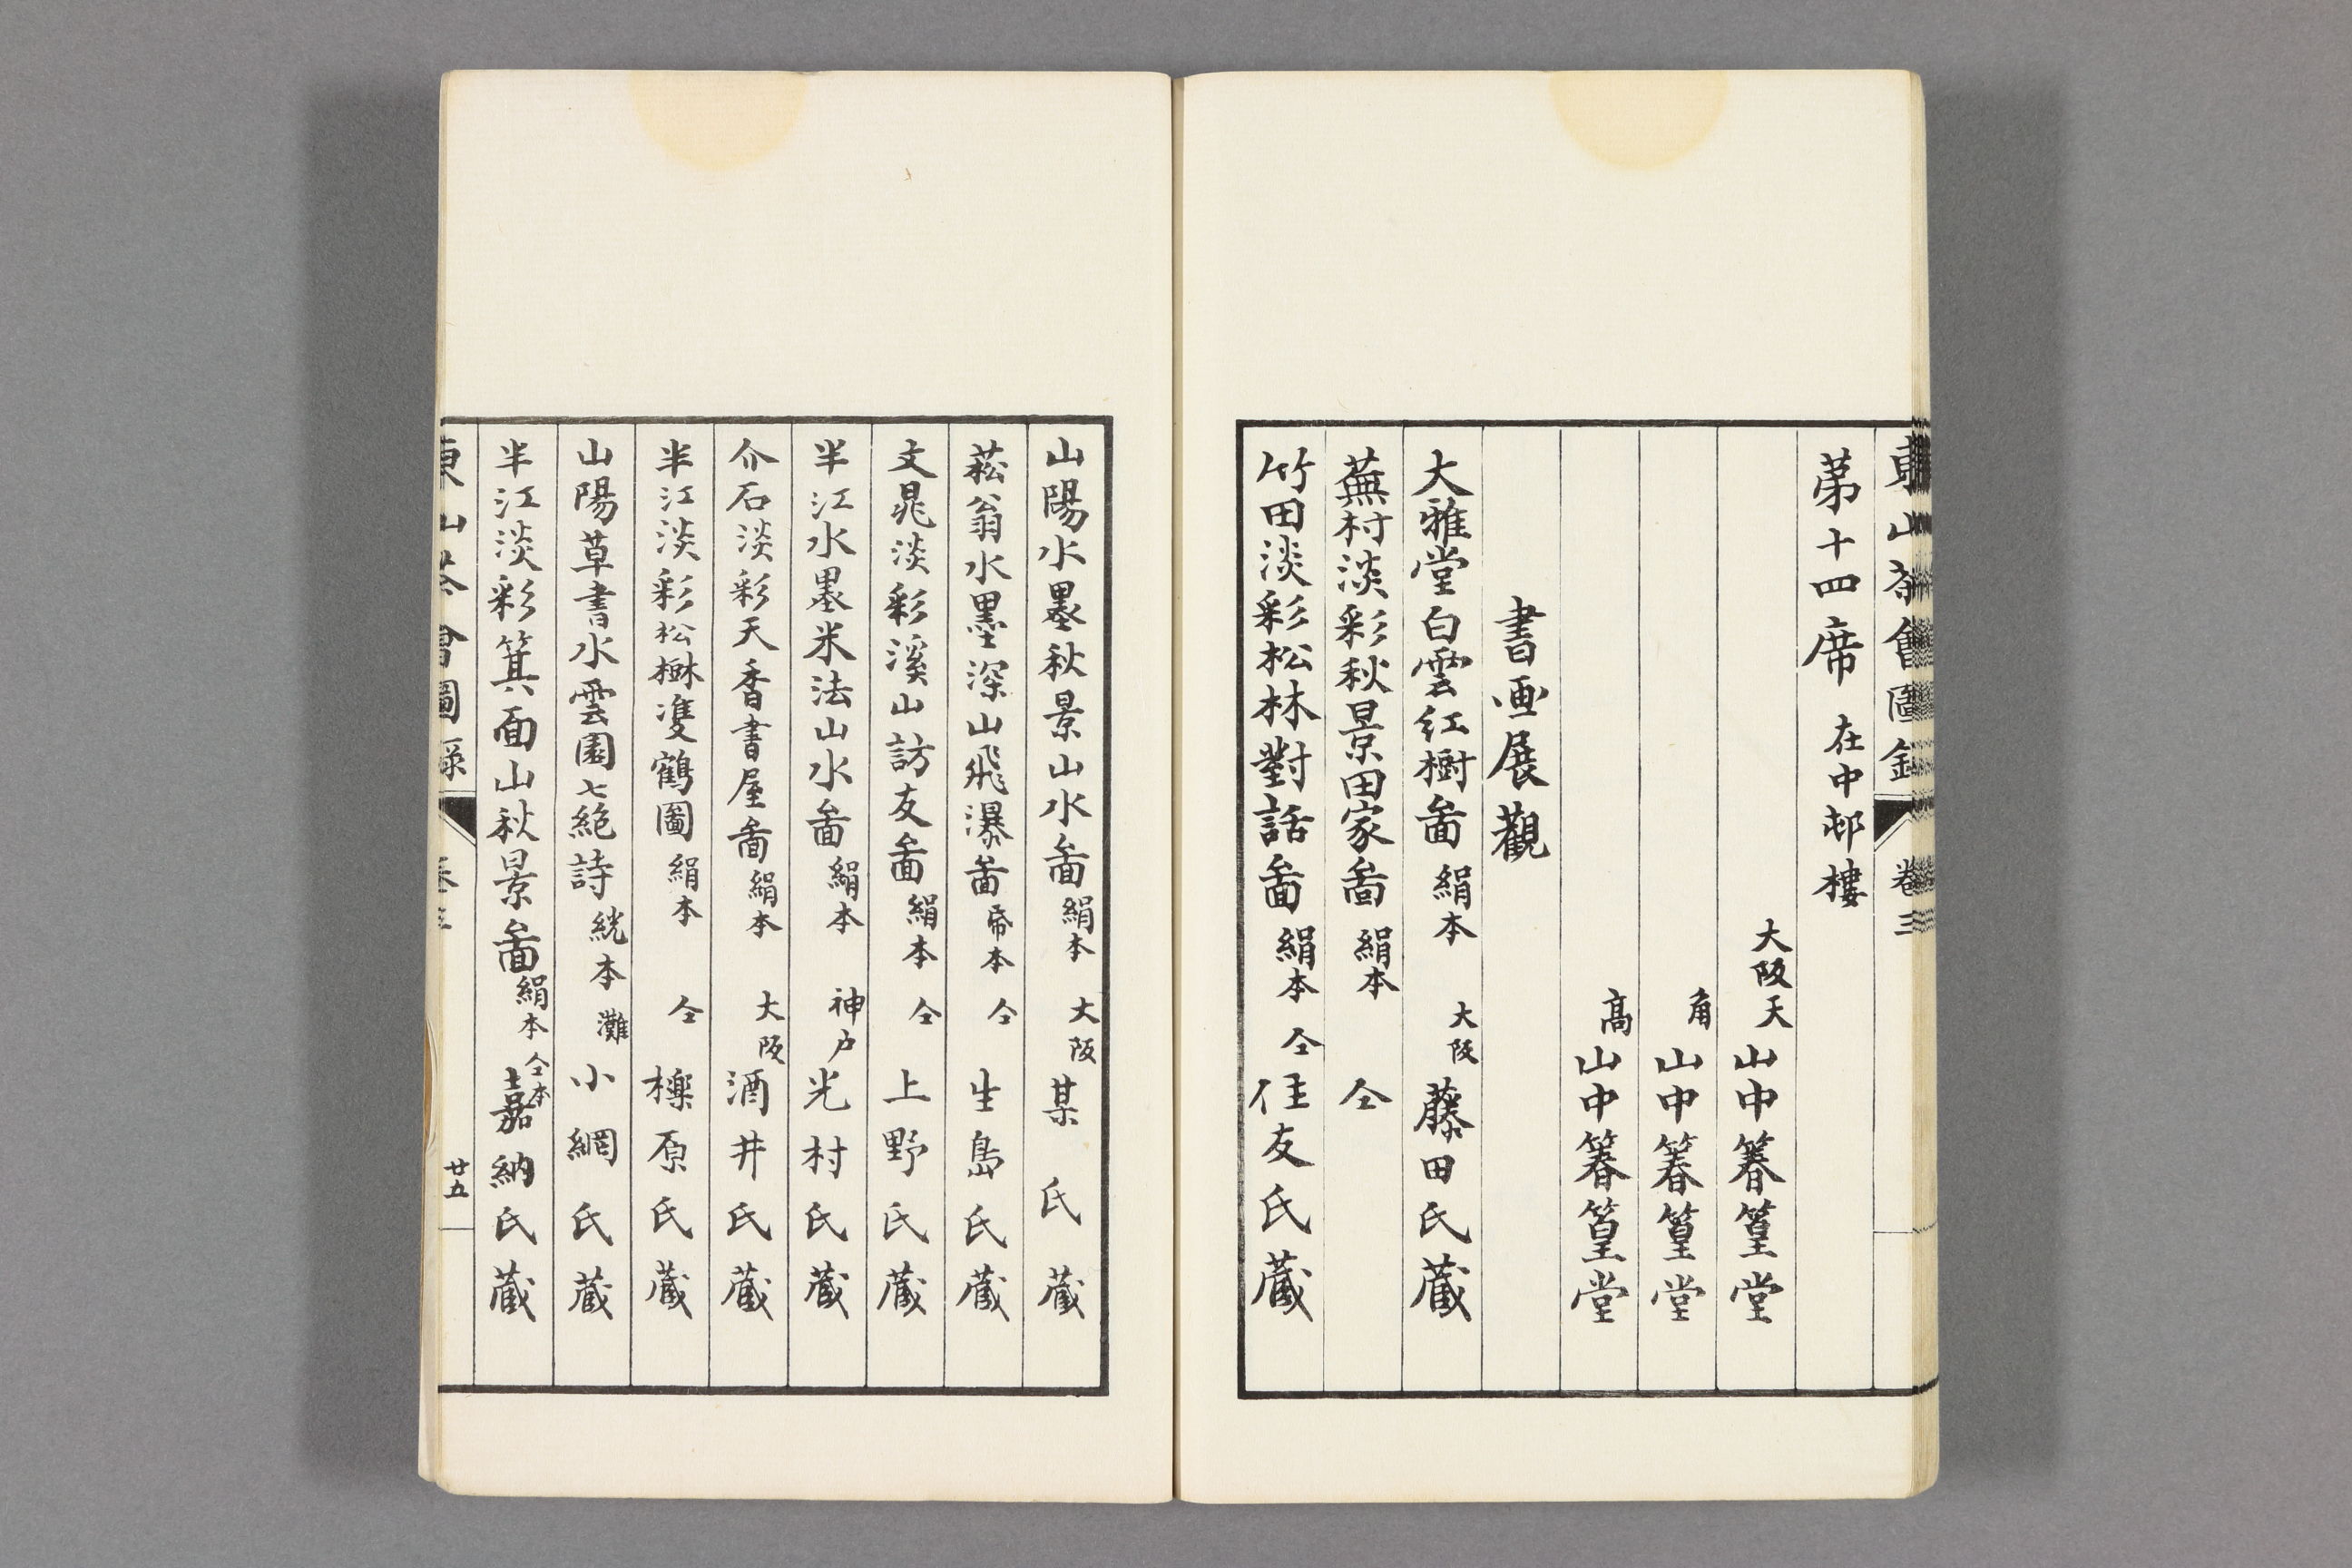 東山茶會圖録 卷三
第十四席 在中邨樓
大阪天 山中篝篁堂
角 山中篝篁堂
高 山中篝篁堂
書画展觀
大雅堂白雲紅樹啚 絹本 大阪 藤田氏蔵
蕪村淡彩秋景田家啚 絹本 仝
竹田淡彩松林對話啚 絹本 仝 住友氏蔵
山陽水墨秋景山水啚 絹本 大阪 某氏蔵
菘翁水墨深山飛瀑啚 帋本 仝 生島氏蔵
文晁淡彩溪山訪友啚 絹本 仝 上野氏蔵
半江水墨米法山水啚 絹本 神戸 光村氏蔵
介石淡彩天香書屋啚 絹本 大阪 酒井氏蔵
半江淡彩松楙雙鶴圖 絹本 仝 檪原氏蔵
山陽草書水雲園七絶詩 絖本 灘 小網氏蔵
半江淡彩箕面山秋景啚 絹本 仝本 嘉納氏蔵
東山茶會圖録 卷三 廿五